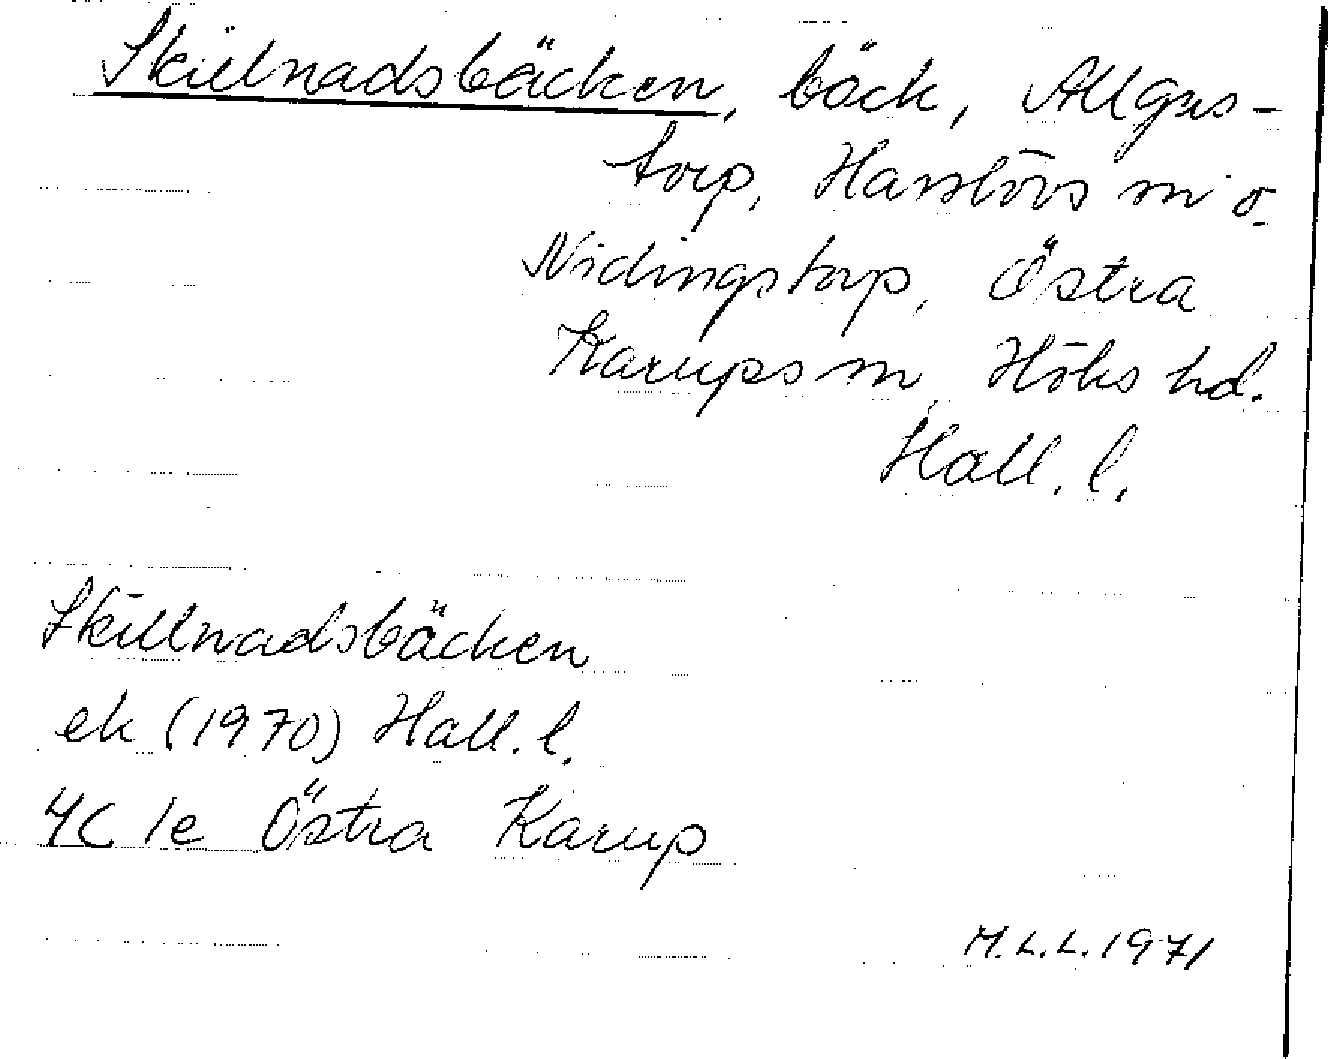 Skillnadsbäcken, bäck, Allgus-
torp, Hasslövs sn o.
Nidingstorp, Östra
Karups sn, Höks hd.
Hall. l.
Skillnadsbäcken
ek (1970) Hall. l.
4C 1e Östra Karup
M.L.L. 1971